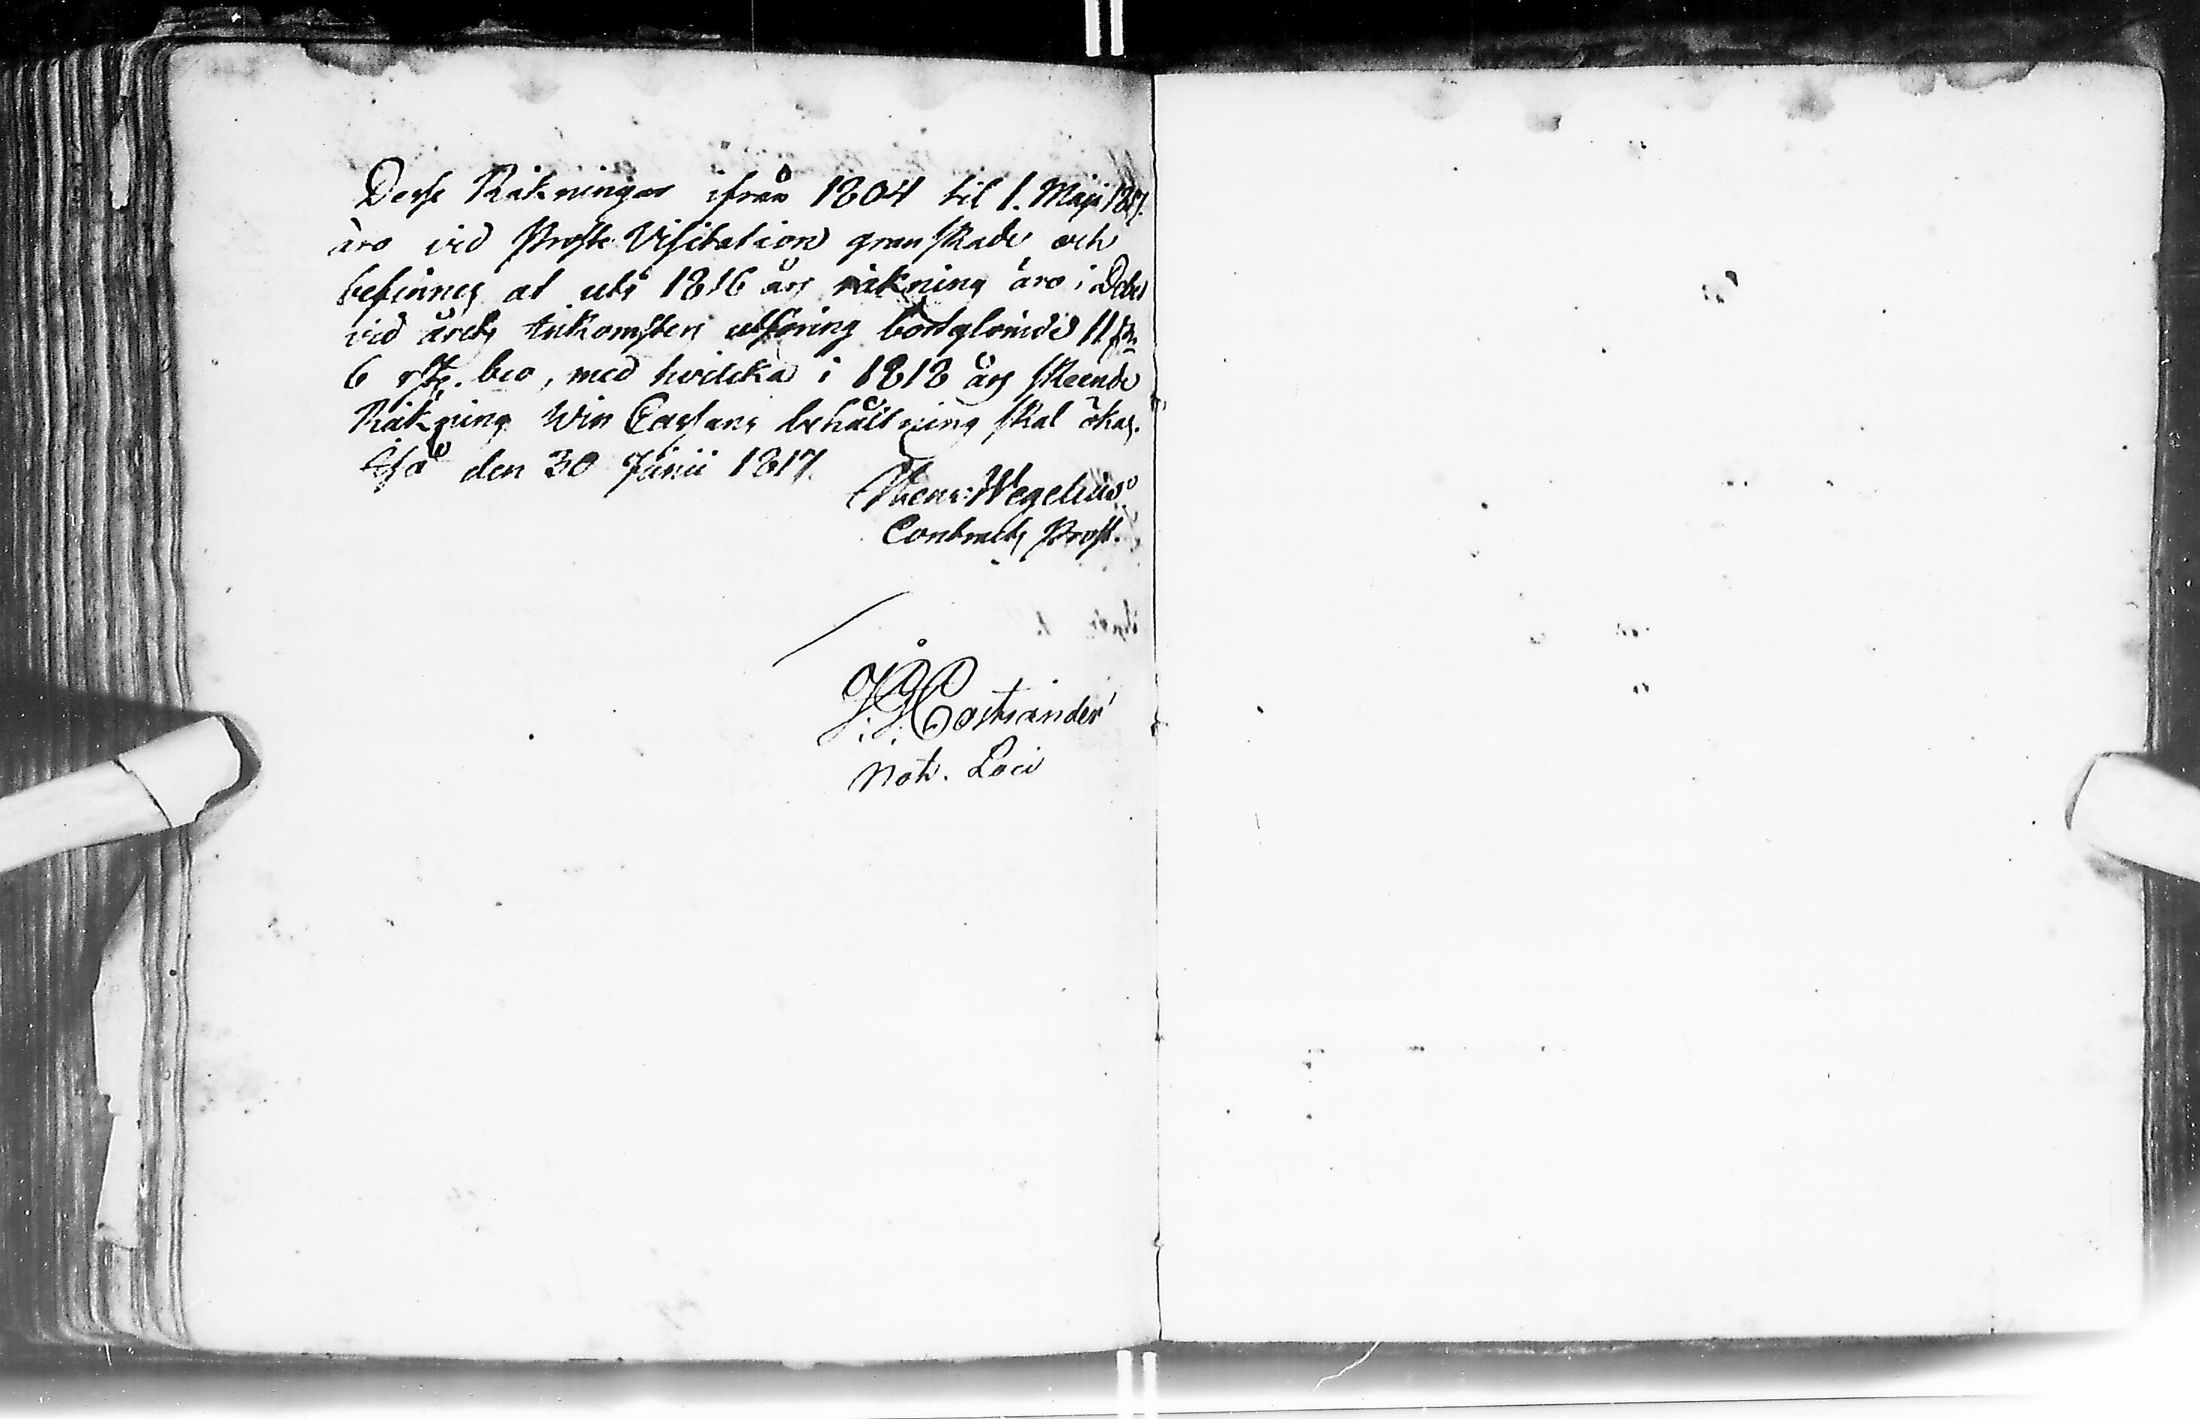 Desse Räkningar ifrån 1804 til 1. Maji 1817.
äro vid Prosts Visitation granskade och
befinnes at uti 1816 års räkning äro i Debet
vid årets inkomsters utföring bortglömde 11
6 bco, med hvilcka i 1818 års skeende
Räkning Win Cassans behållning skal ökas.
Eså den 30 Junii 1817.
Wegelius
Contracts Prost.
Costiander
Not. Loci